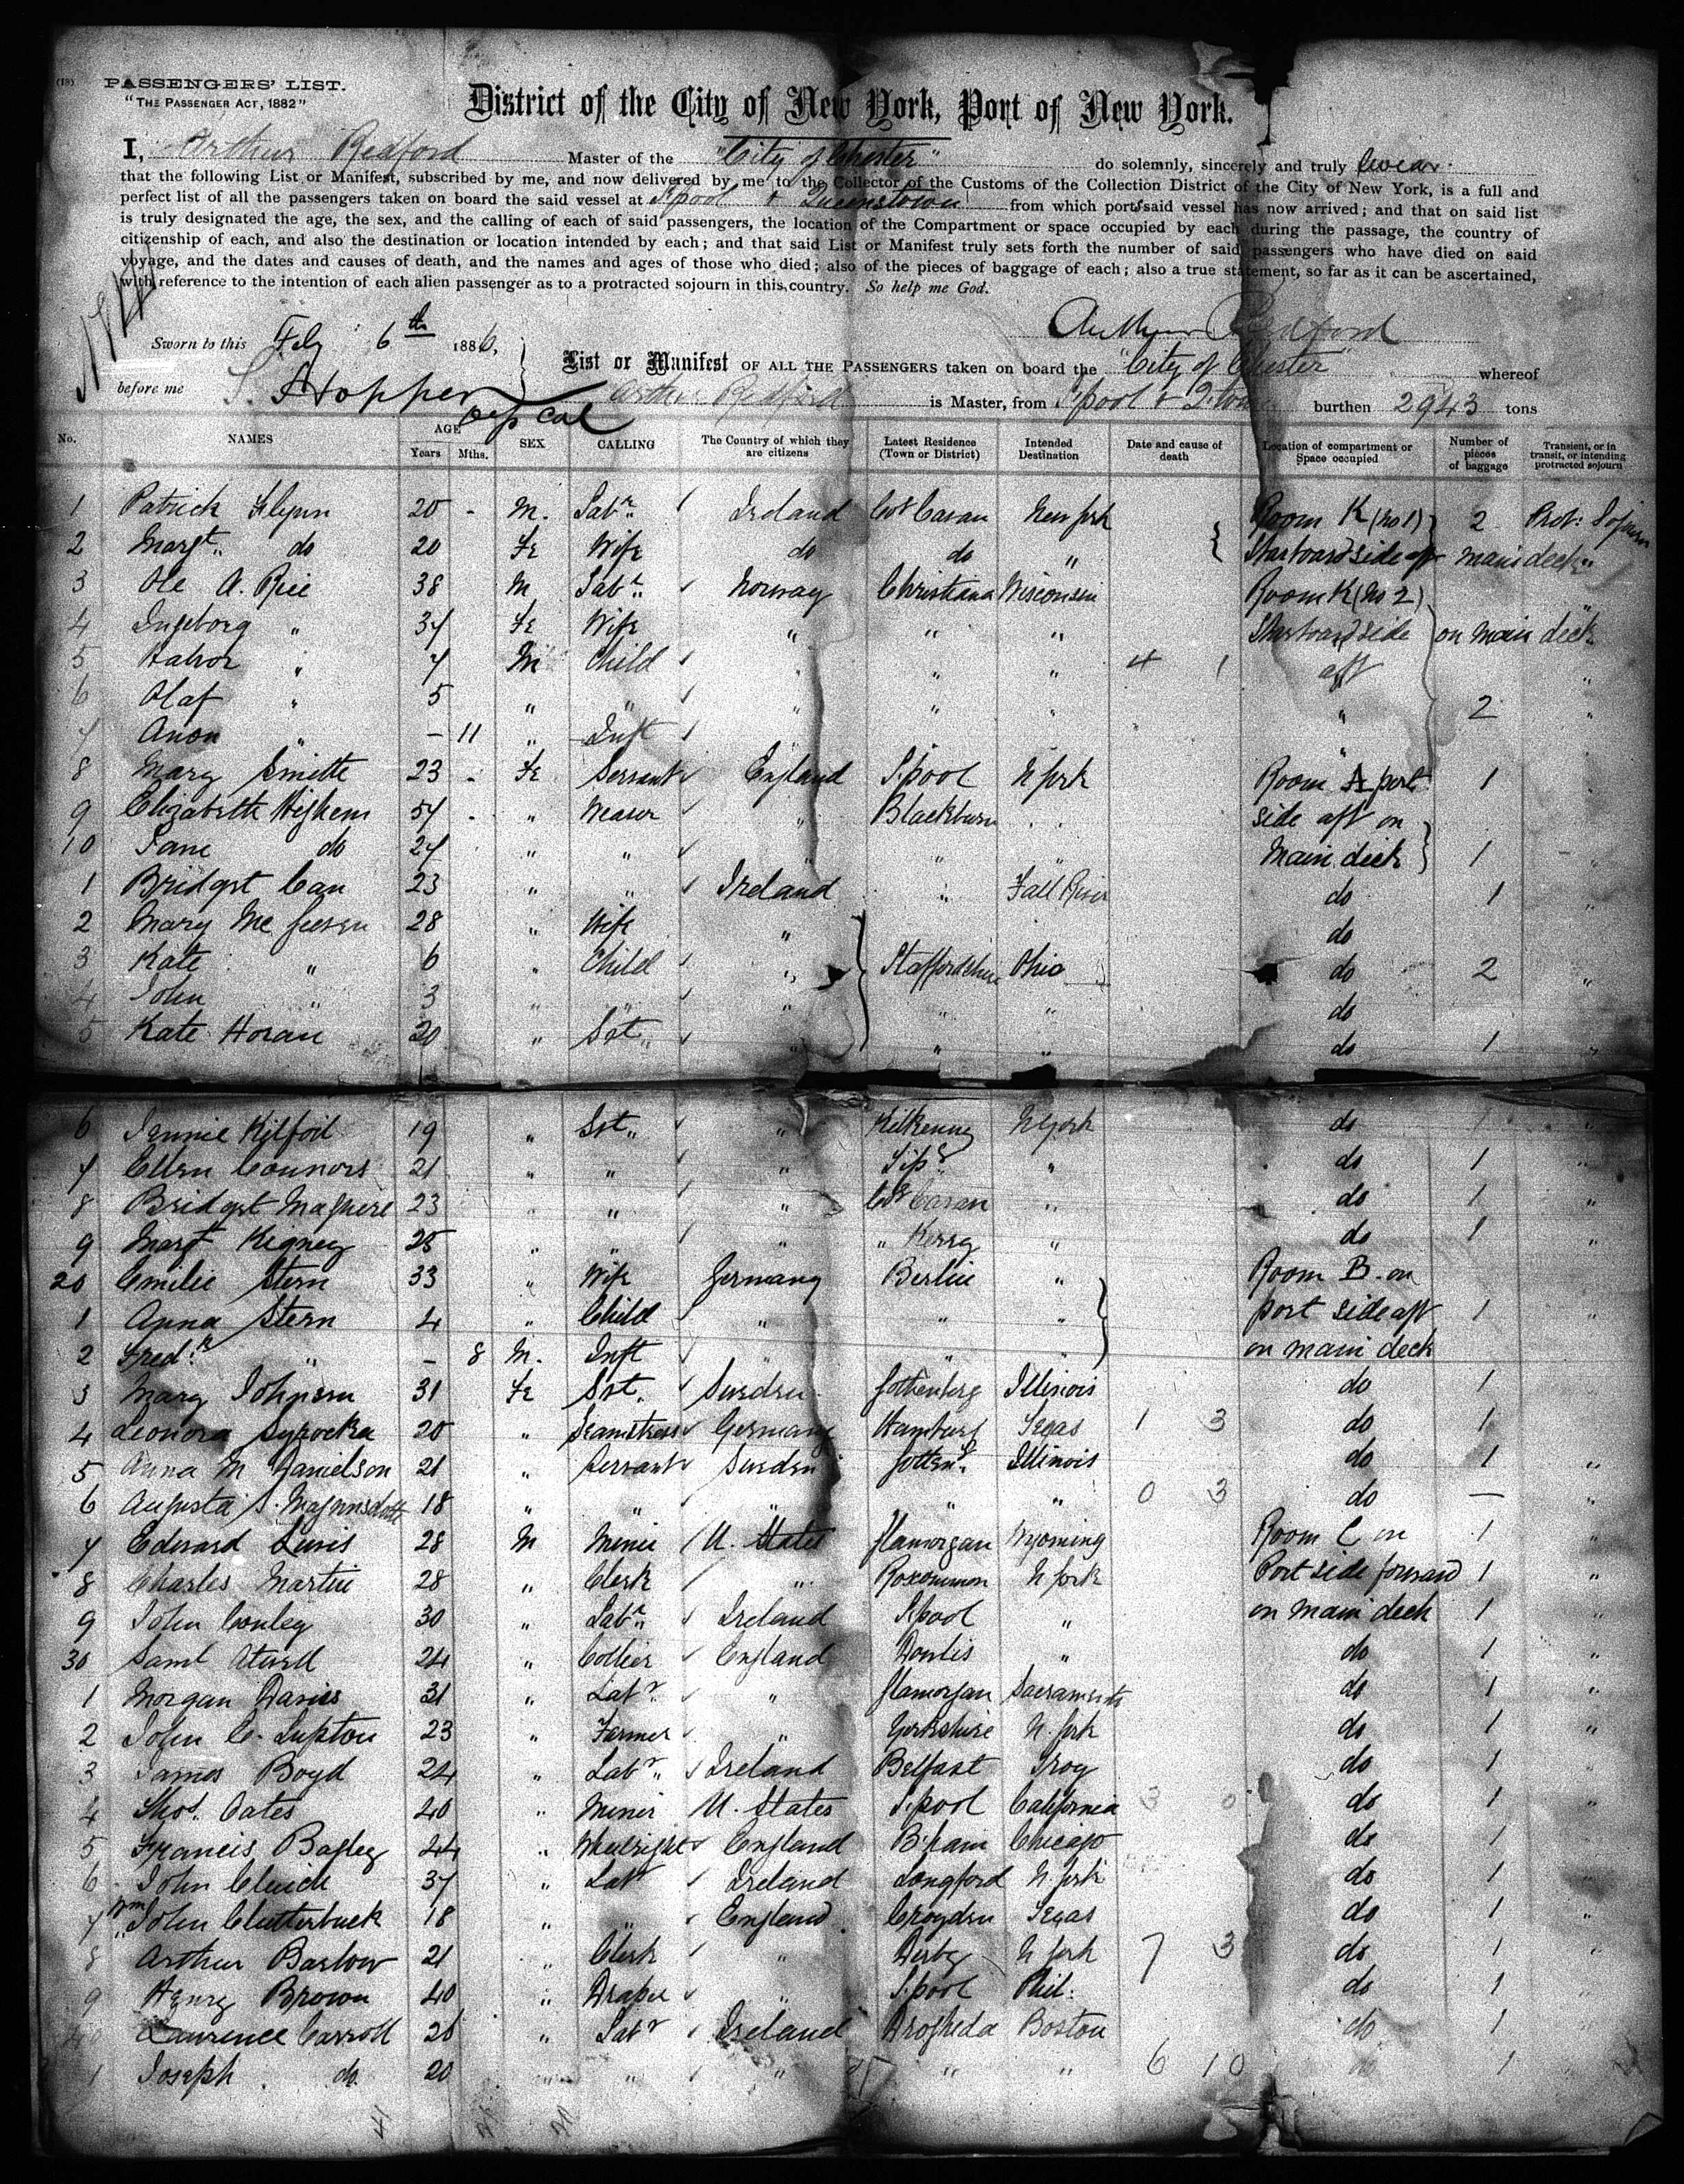 (18)
PASSENGERS' LIST.
"THE PASSENGER ACT, 1882"
District of the City of New York, Port of New York.
I, Arthur Redford Master of the "City of Chester" do solemnly, sincerely and truly swear
that the following List or Manifest, subscribed by me, and now delivered by me to the Collector of the Customs of the Collection District of the City of New York, is a full and
perfect list of all the passengers taken on board the said vessel at L'pool & Queenstown from which ports said vessel has now arrived; and that on said list
is truly designated the age, the sex, and the calling of each of said passengers, the location of the Compartment or space occupied by each during the passage, the country of
citizenship of each, and also the destination or location intended by each; and that said List or Manifest truly sets forth the number of said passengers who have died on said
voyage, and the dates and causes of death, and the names and ages of those who died; also of the pieces of baggage of each; also a true statement, so far as it can be ascertained,
with reference to the intention of each alien passenger as to a protracted sojourn in this country. So help me God.
Arthur Redford
Sworn to this Feby 6th 1886,
before me S. Hopper
Dep Col
List or Manifest OF ALL THE PASSENGERS taken on board the "City of Chester" whereof
Arthur Redford is Master, from L'pool & Q.town burthen 2943 tons
No. NAMES AGE Years Mths. SEX CALLING The Country of which they are citizens Latest Residence (Town or District) Intended Destination Date and cause of death Location of compartment or Space occupied Number of pieces of baggage Transient, or in transit, or intending protracted sojourn
1 Patrick Flynn 20 - M. Labr. Ireland Coy Cavan New York Room K (No 1) 2 Prot: Sojourn
2 Margt. do 20 Fe Wife do do " Starboard side aft main deck "
3 Ole A. Rice 38 M Labr. Norway Christiana Wisconsin Room K (No 2) "
4 Ingeborg " 37 Fe Wife " " " Starboard side on main deck
5 Halvor " 7 M Child " " " 4 1 aft "
6 Olaf " 5 " " " " " " 2 "
7 Anon " - 11 " Inft "
8 Mary Smith 23 - Fe Servant England L'pool N York Room A port 1
9 Elizabeth Highem 57 - " Weaver " Blackburn " side aft on
10 Jane do 27 " " " " " Main deck 1 "
1 Bridget Can 23 " " Ireland " Fall River do 1 "
2 Mary Mc 28 " Wife " do
3 Kate " 6 " Child " Staffordshire Ohio do 2 "
4 John " 3 " " " " " do
5 Kate Horan 20 " Svt. " " " do 1 "
6 Jennie Kilfoil 19 " Svt. " Kilkenny N York do 1 "
7 Ellen Connors 21 " " " Tipy " do 1 "
8 Bridget Maguire 23 " " " Coy Cavan " do 1 "
9 Margt Kigney 25 " " " " Kerry " do 1 "
20 Emilie Stern 33 " Wife Germany Berlin " Room B. on
1 Anna Stern 4 " Child " " " port side aft 1 "
2 Fredk " - 8 M. Inft " " " on main deck
3 Mary Johnson 31 Fe Svt. Sweden Gothenberg Illinois do 1
4 Leonora 20 " Seamstress Germany Hamburg Texas 1 3 do 1
5 Anna M Danielson 21 " Servant Sweden Gottenbg. Illinois do 1 "
6 Augusta S. Magnusdotter 18 " " " " " 0 3 do — "
7 Edward Lewis 28 M Miner U. States Glamorgan Wyoming Room C on 1 "
8 Charles Martin 28 " Clerk " Roscommon N York Port side forward 1 "
9 John Conley 30 " Labr. Ireland L'pool " on main deck 1 "
30 Saml Atwell 24 " Collier England Dowlis " do 1 "
1 Morgan Davies 31 " Labr. " Glamorgan Sacramento do 1 "
2 John C. Lupton 23 " Farmer " Yorkshire N. York do 1 "
3 James Boyd 24 " Labr. Ireland Belfast Troy do 1 "
4 Thos. Oates 40 " Miner U. States L'pool California 3 0 do 1 "
5 Francis Bagley 44 " Wheelright England B'ham Chicago do 1 "
6 John 37 " Labr Ireland Longford N. York do 1 "
7 Wm John Clutterbuck 18 " " England Croyden Texas do 1 "
8 Arthur Barlow 21 " Clerk " Derby N York 7 3 do 1 "
9 Henry Brown 40 " Draper " L'pool Phil: do 1
40 Lawrence Carroll 26 " Labr Ireland Drogheda Boston do 1
1 Joseph do 20 " " " " " 6 10 do 1